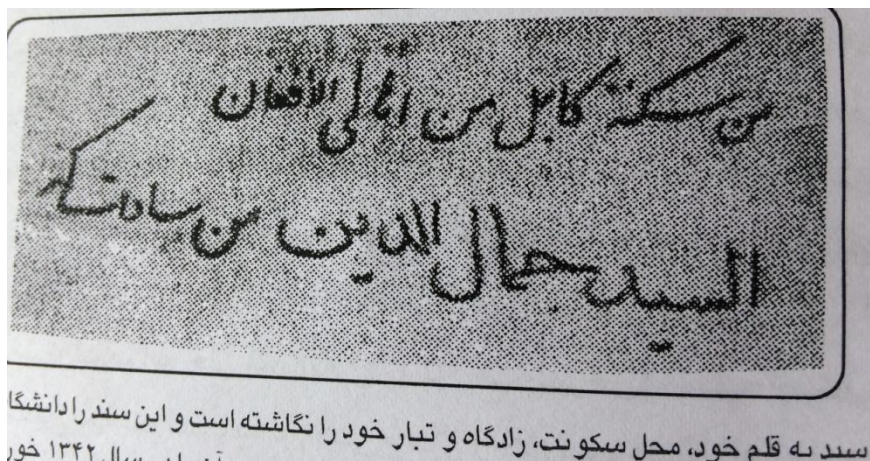 من سكنة كابل من اهالی الافغان
السيد جمال الدين من سادات كنر
سید به قلم خود، محل سکونت، زادگاه و تبار خود را نگاشته است و این سند را دانشگا
سال ۱۳۴۲ خور